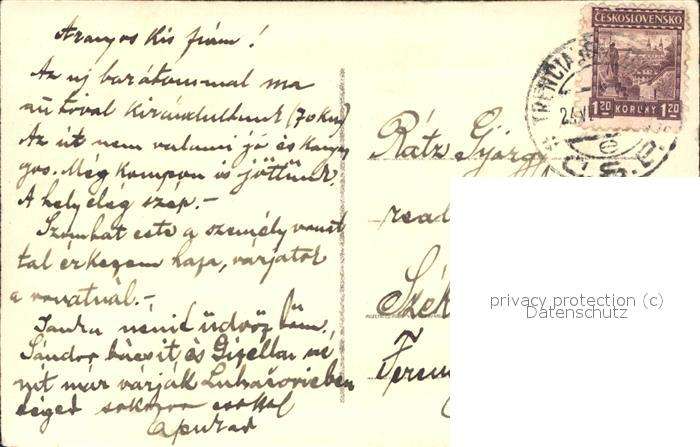 Aranyos kis fiam!
Az uj barátommal ma
autóval kirándultunk (70 km)
Az út nem valami jó és kanyar
gos. Még kompon is jöttünk.
A hely elég szép.-
Szombat este a személy vonat
tal érkezem haza, várjatok
a vonatnál.-
néni üdvözlöm.
Sándor bácsit és Gizella né
nit már várják Luhačovicben
téged sokszor csókol
apukád
Rátz György
real
Szék
Feren
ČESKOSLOVENSKO
1.20 KORUNY 1.20
TRENČIA
privacy protection (c)
Datenschutz